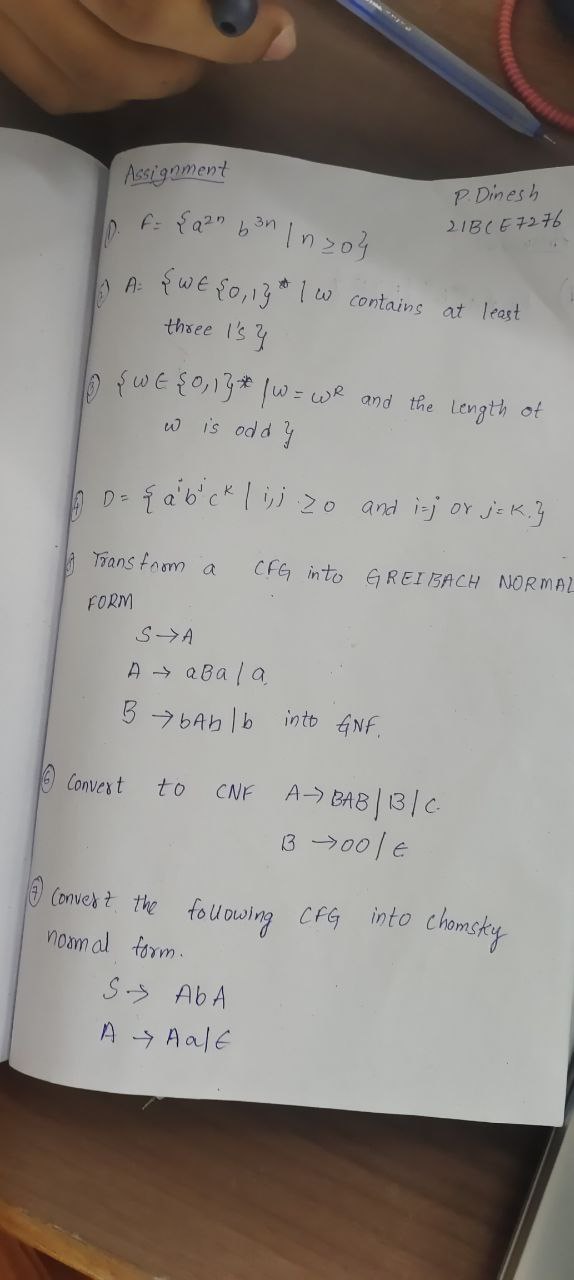 Assignment
P. Dinesh
21BCE7276
1). F = {a²ⁿ b³ⁿ | n ≥ 0}
② A = {w ∈ {0,1}* | w contains at least
three 1's }
③ {w ∈ {0,1}* | w = wᴿ and the length of
w is odd }
④ D = {aⁱbʲcᵏ | i,j ≥ 0 and i=j or j=k.}
Transform a CFG into GREIBACH NORMAL
FORM
S → A
A → aBa | a
B → bAb | b into GNF.
⑥ Convert to CNF A → BAB | B | C
B → 00 | ε
⑦ Convert the following CFG into Chomsky
normal form.
S → AbA
A → Aa | ε